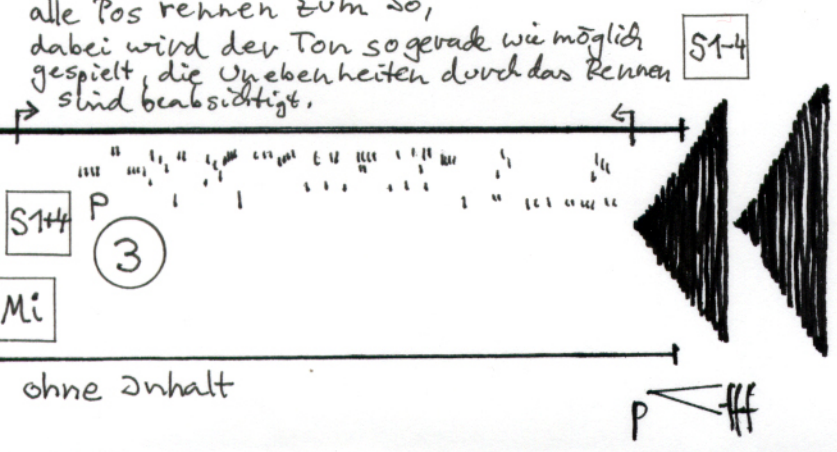 alle Pos rennen zum So,
dabei wird der Ton so gerade wie möglich
gespielt, die Unebenheiten durch das Rennen
sind beabsichtigt.
S1-4
S1+4
P
3
Mi
ohne Inhalt
P
fff